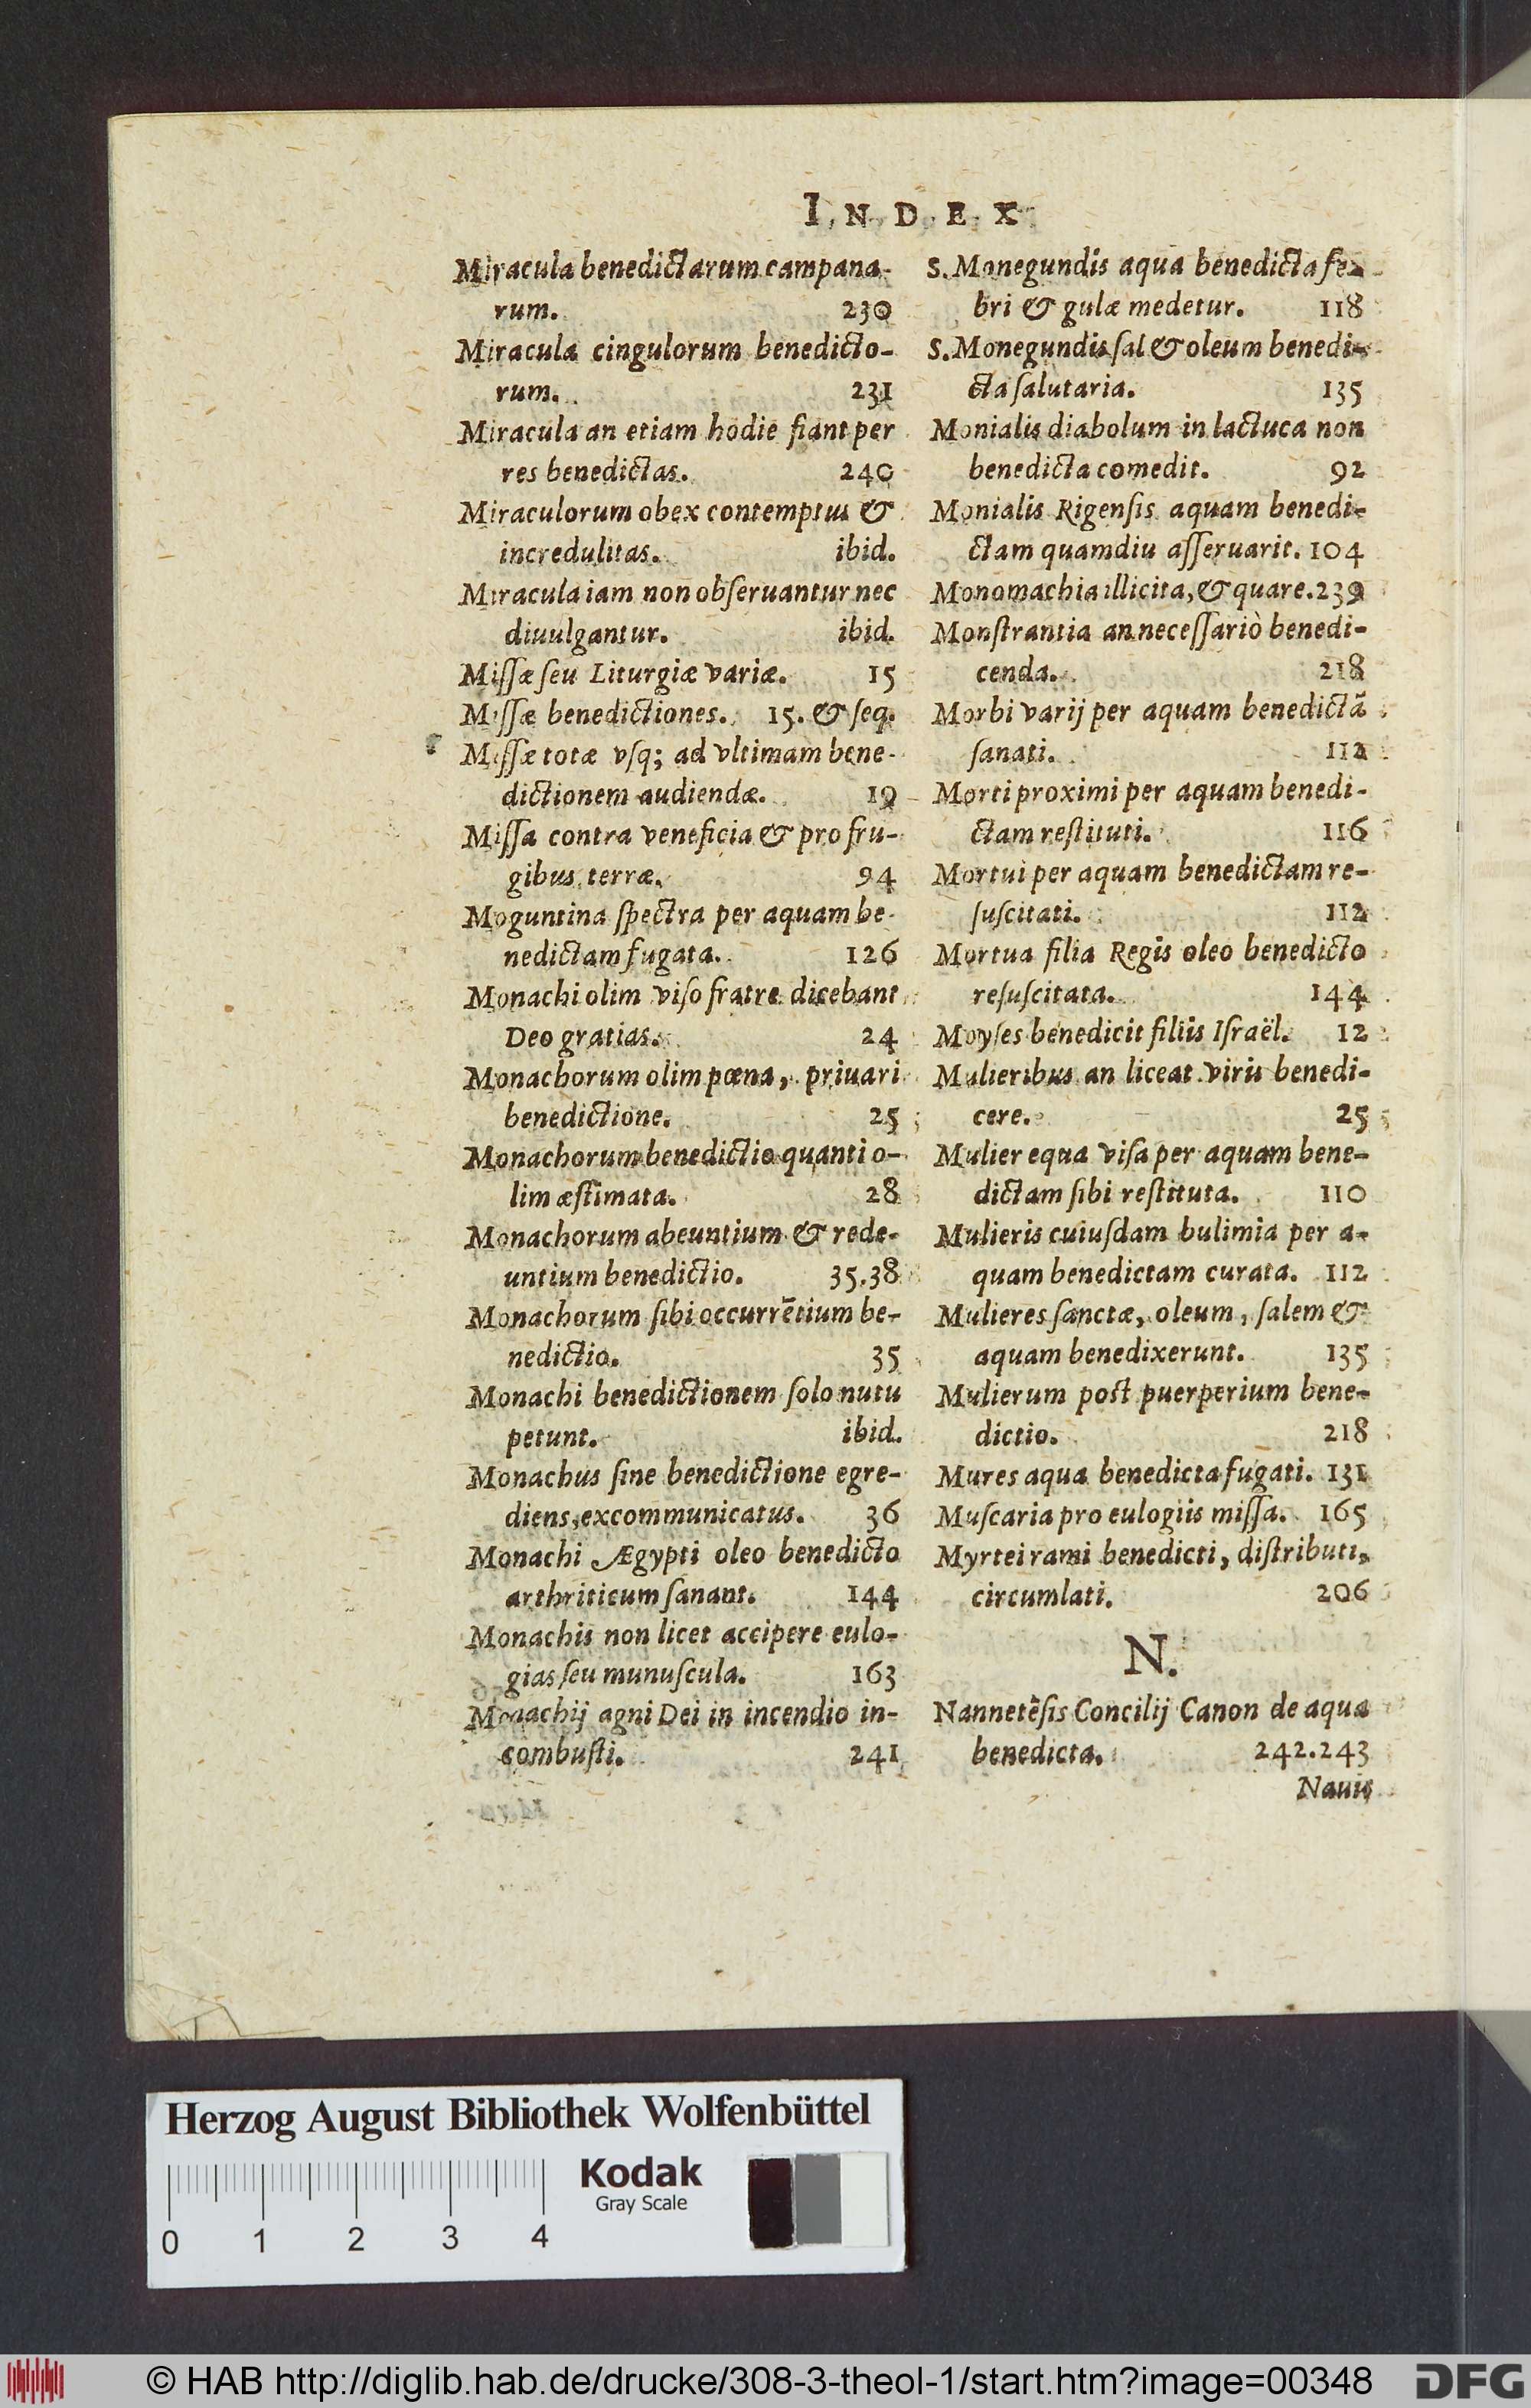 INDEX
Miracula benedictarum campana-
rum. 230
Miracula cingulorum benedicto-
rum. 231
Miracula an etiam hodie fiant per
res benedictas. 240
Miraculorum obex contemptus &
incredulitas. ibid.
Miracula iam non obſeruantur nec
diuulgantur. ibid.
Miſſæ ſeu Liturgiæ variæ. 15
Miſſæ benedictiones. 15. & ſeq.
Miſſæ totæ vſq; ad vltimam bene-
dictionem audiendæ. 19
Miſſa contra veneficia & pro fru-
gibus terræ. 94
Moguntina ſpectra per aquam be-
nedictam fugata. 126
Monachi olim viſo fratre dicebant
Deo gratias. 24
Monachorum olim pœna, priuari
benedictione. 25
Monachorum benedictio quanti o-
lim æſtimata. 28
Monachorum abeuntium & rede-
untium benedictio. 35.38
Monachorum ſibi occurrētium be-
nedictio. 35
Monachi benedictionem ſolo nutu
petunt. ibid.
Monachus ſine benedictione egre-
diens, excommunicatus. 36
Monachi Ægypti oleo benedicto
arthriticum ſanant. 144
Monachis non licet accipere eulo-
gias ſeu munuſcula. 163
Monachij agni Dei in incendio in-
combuſti. 241
S. Monegundis aqua benedicta fe-
bri & gulæ medetur. 118
S. Monegundis ſal & oleum benedi-
cta ſalutaria. 135
Monialis diabolum in lactuca non
benedicta comedit. 92
Monialis Rigenſis aquam benedi-
ctam quamdiu aſſeruarit. 104
Monomachia illicita, & quare. 239
Monſtrantia an neceſſariò benedi-
cenda. 218
Morbi varij per aquam benedictā
ſanati. 112
Morti proximi per aquam benedi-
ctam reſtituti. 116
Mortui per aquam benedictam re-
ſuſcitati. 112
Mortua filia Regis oleo benedicto
reſuſcitata. 144
Moyſes benedicit filiis Iſraël. 12
Mulieribus an liceat viris benedi-
cere. 25
Mulier equa viſa per aquam bene-
dictam ſibi reſtituta. 110
Mulieris cuiuſdam bulimia per a-
quam benedictam curata. 112
Mulieres ſanctæ, oleum, ſalem &
aquam benedixerunt. 135
Mulierum poſt puerperium bene-
dictio. 218
Mures aqua benedicta fugati. 131
Muſcaria pro eulogiis miſſa. 165
Myrtei rami benedicti, diſtributi,
circumlati. 206
N.
Nannetēſis Concilij Canon de aqua
benedicta. 242.243
Nauis
Herzog August Bibliothek Wolfenbüttel
Kodak
Gray Scale
0 1 2 3 4
© HAB http://diglib.hab.de/drucke/308-3-theol-1/start.htm?image=00348
DFG